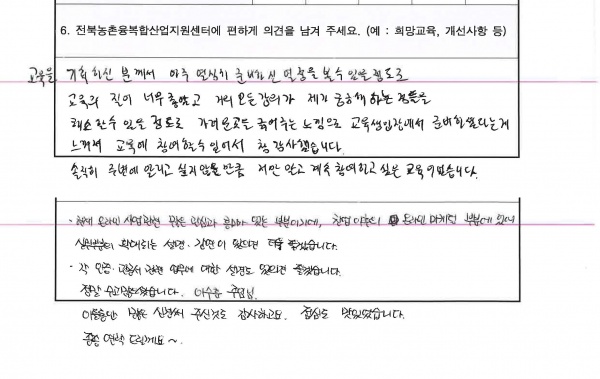 6. 전북농촌융복합산업지원센터에 편하게 의견을 남겨 주세요. (예 : 희망교육, 개선사항 등)
교육을 기획하신 분께서 아주 열심히 준비하신 열정을 볼 수 있을 정도로
교육의 질이 너무 좋았고 거의 모든 강의가 제가 궁금해 하는 점들을
해소할 수 있을 정도로 가려운 곳을 긁어주는 느낌으로 교육생 입장에서 준비하셨다는게
느껴져 교육에 참여할 수 있어서 참 감사했습니다.
솔직히 주변에 알리고 싶지 않을 만큼 저만 알고 계속 참여하고 싶은 교육이었습니다.
· 현재 온라인 사업관련 많은 관심과 홍보가 있는 부분이기에, 창업 이후의 온라인 마케팅 부분에 있어
심화부분이 확대되는 설명·강연이 있다면 더욱 좋겠습니다.
· 각 인증· 관련 업무에 대한 설명도 있으면 좋겠습니다.
정말 수고 많으셨습니다. 주임님.
이틀동안 많은 신경써 주신것도 감사하고요. 점심도 맛있었습니다.
종종 연락 드릴게요~.